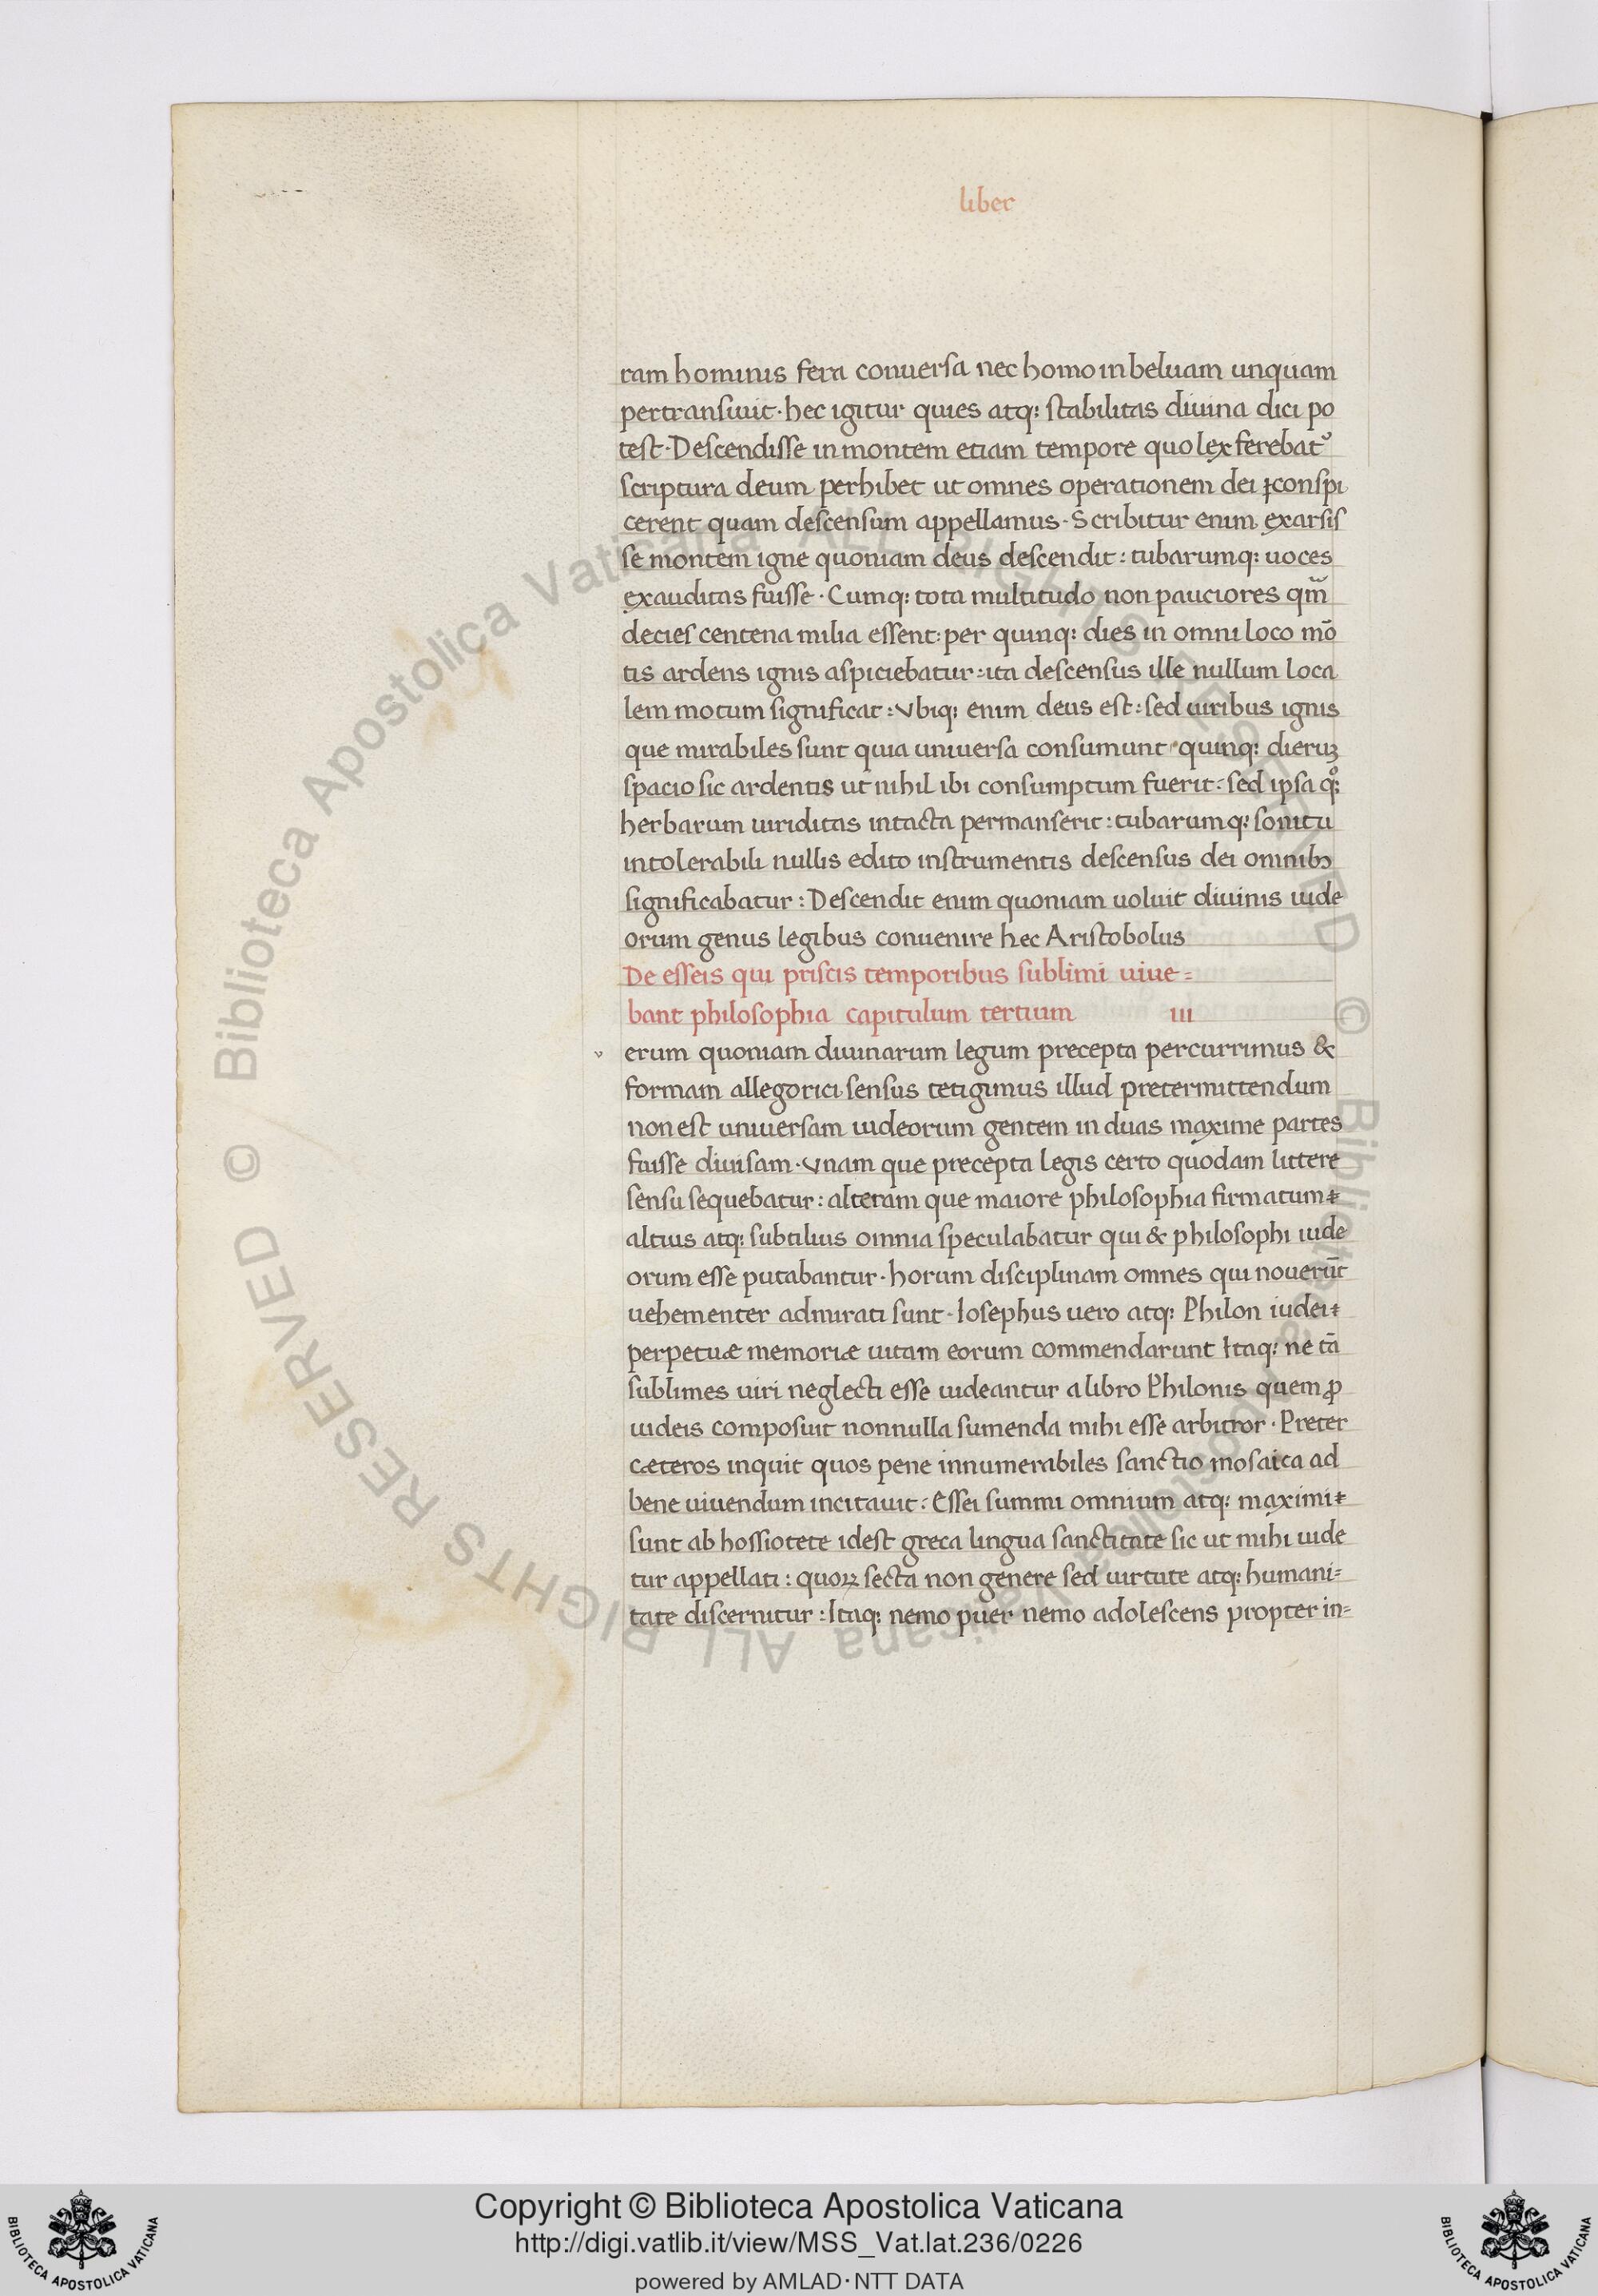 liber
ram hominis fera conuersa nec homo in beluam unquam
pertransiuit · hec igitur quies atq; stabilitas diuina dici po
test · Descendisse in montem etiam tempore quo lex ferebat᷒
scriptura deum perhibet ut omnes operationem dei ꝓconspi
cerent quam descensum appellamus · Scribitur enim exarsis
se montem igne quoniam deus descendit : tubarumq; uoces
exauditas fuisse · Cumq; tota multitudo non pauciores qm̄
decies centena milia essent : per quinq; dies in omni loco mō
tis ardens ignis aspiciebatur : ita descensus ille nullum loca
lem motum significat : vbiq; enim deus est : sed uiribus ignis
que mirabiles sunt quia uniuersa consumunt · quinq; dieruꝫ
spacio sic ardentis ut nihil ibi consumptum fuerit : sed ipsa qͦ;
herbarum uiriditas intacta permanserit : tubarumq; sonitu
intolerabili nullis edito instrumentis descensus dei omnibꝫ
significabatur : Descendit enim quoniam uoluit diuinis iude
orum genus legibus conuenire hec Aristobolus
De esseis qui priscis temporibus sublimi uiue=
bant philosophia capitulum tertium iii
v erum quoniam diuinarum legum precepta percurrimus &
formam allegorici sensus tetigimus illud pretermittendum
non est uniuersam iudeorum gentem in duas maxime partes
fuisse diuisam · vnam que precepta legis certo quodam littere
sensu sequebatur : alteram que maiore philosophia firmatum
altius atq; subtilius omnia speculabatur qui & philosophi iude
orum esse putabantur · horum disciplinam omnes qui nouerūt
uehementer admirati sunt · Iosephus uero atq; Philon iudei
perpetuæ memoriæ uitam eorum commendarunt Itaq; ne tā
sublimes uiri neglecti esse uideantur a libro Philonis quem ꝓ
iudeis composuit nonnulla sumenda mihi esse arbitror · Preter
cæteros inquit quos pene innumerabiles sanctio mosaica ad
bene uiuendum incitauit : Essei summi omnium atq; maximi
sunt ab hossiotete idest greca lingua sanctitate sic ut mihi uide
tur appellati : quoꝝ secta non genere sed uirtute atq; humani=
tate discernitur : Itaq; nemo puer nemo adolescens propter in=
Copyright © Biblioteca Apostolica Vaticana
http://digi.vatlib.it/view/MSS_Vat.lat.236/0226
powered by AMLAD · NTT DATA
BIBLIOTECA APOSTOLICA VATICANA
BIBLIOTECA APOSTOLICA VATICANA
© Biblioteca Apostolica Vaticana ALL RIGHTS RESERVED © Biblioteca Apostolica Vaticana ALL RIGHTS RESERVED